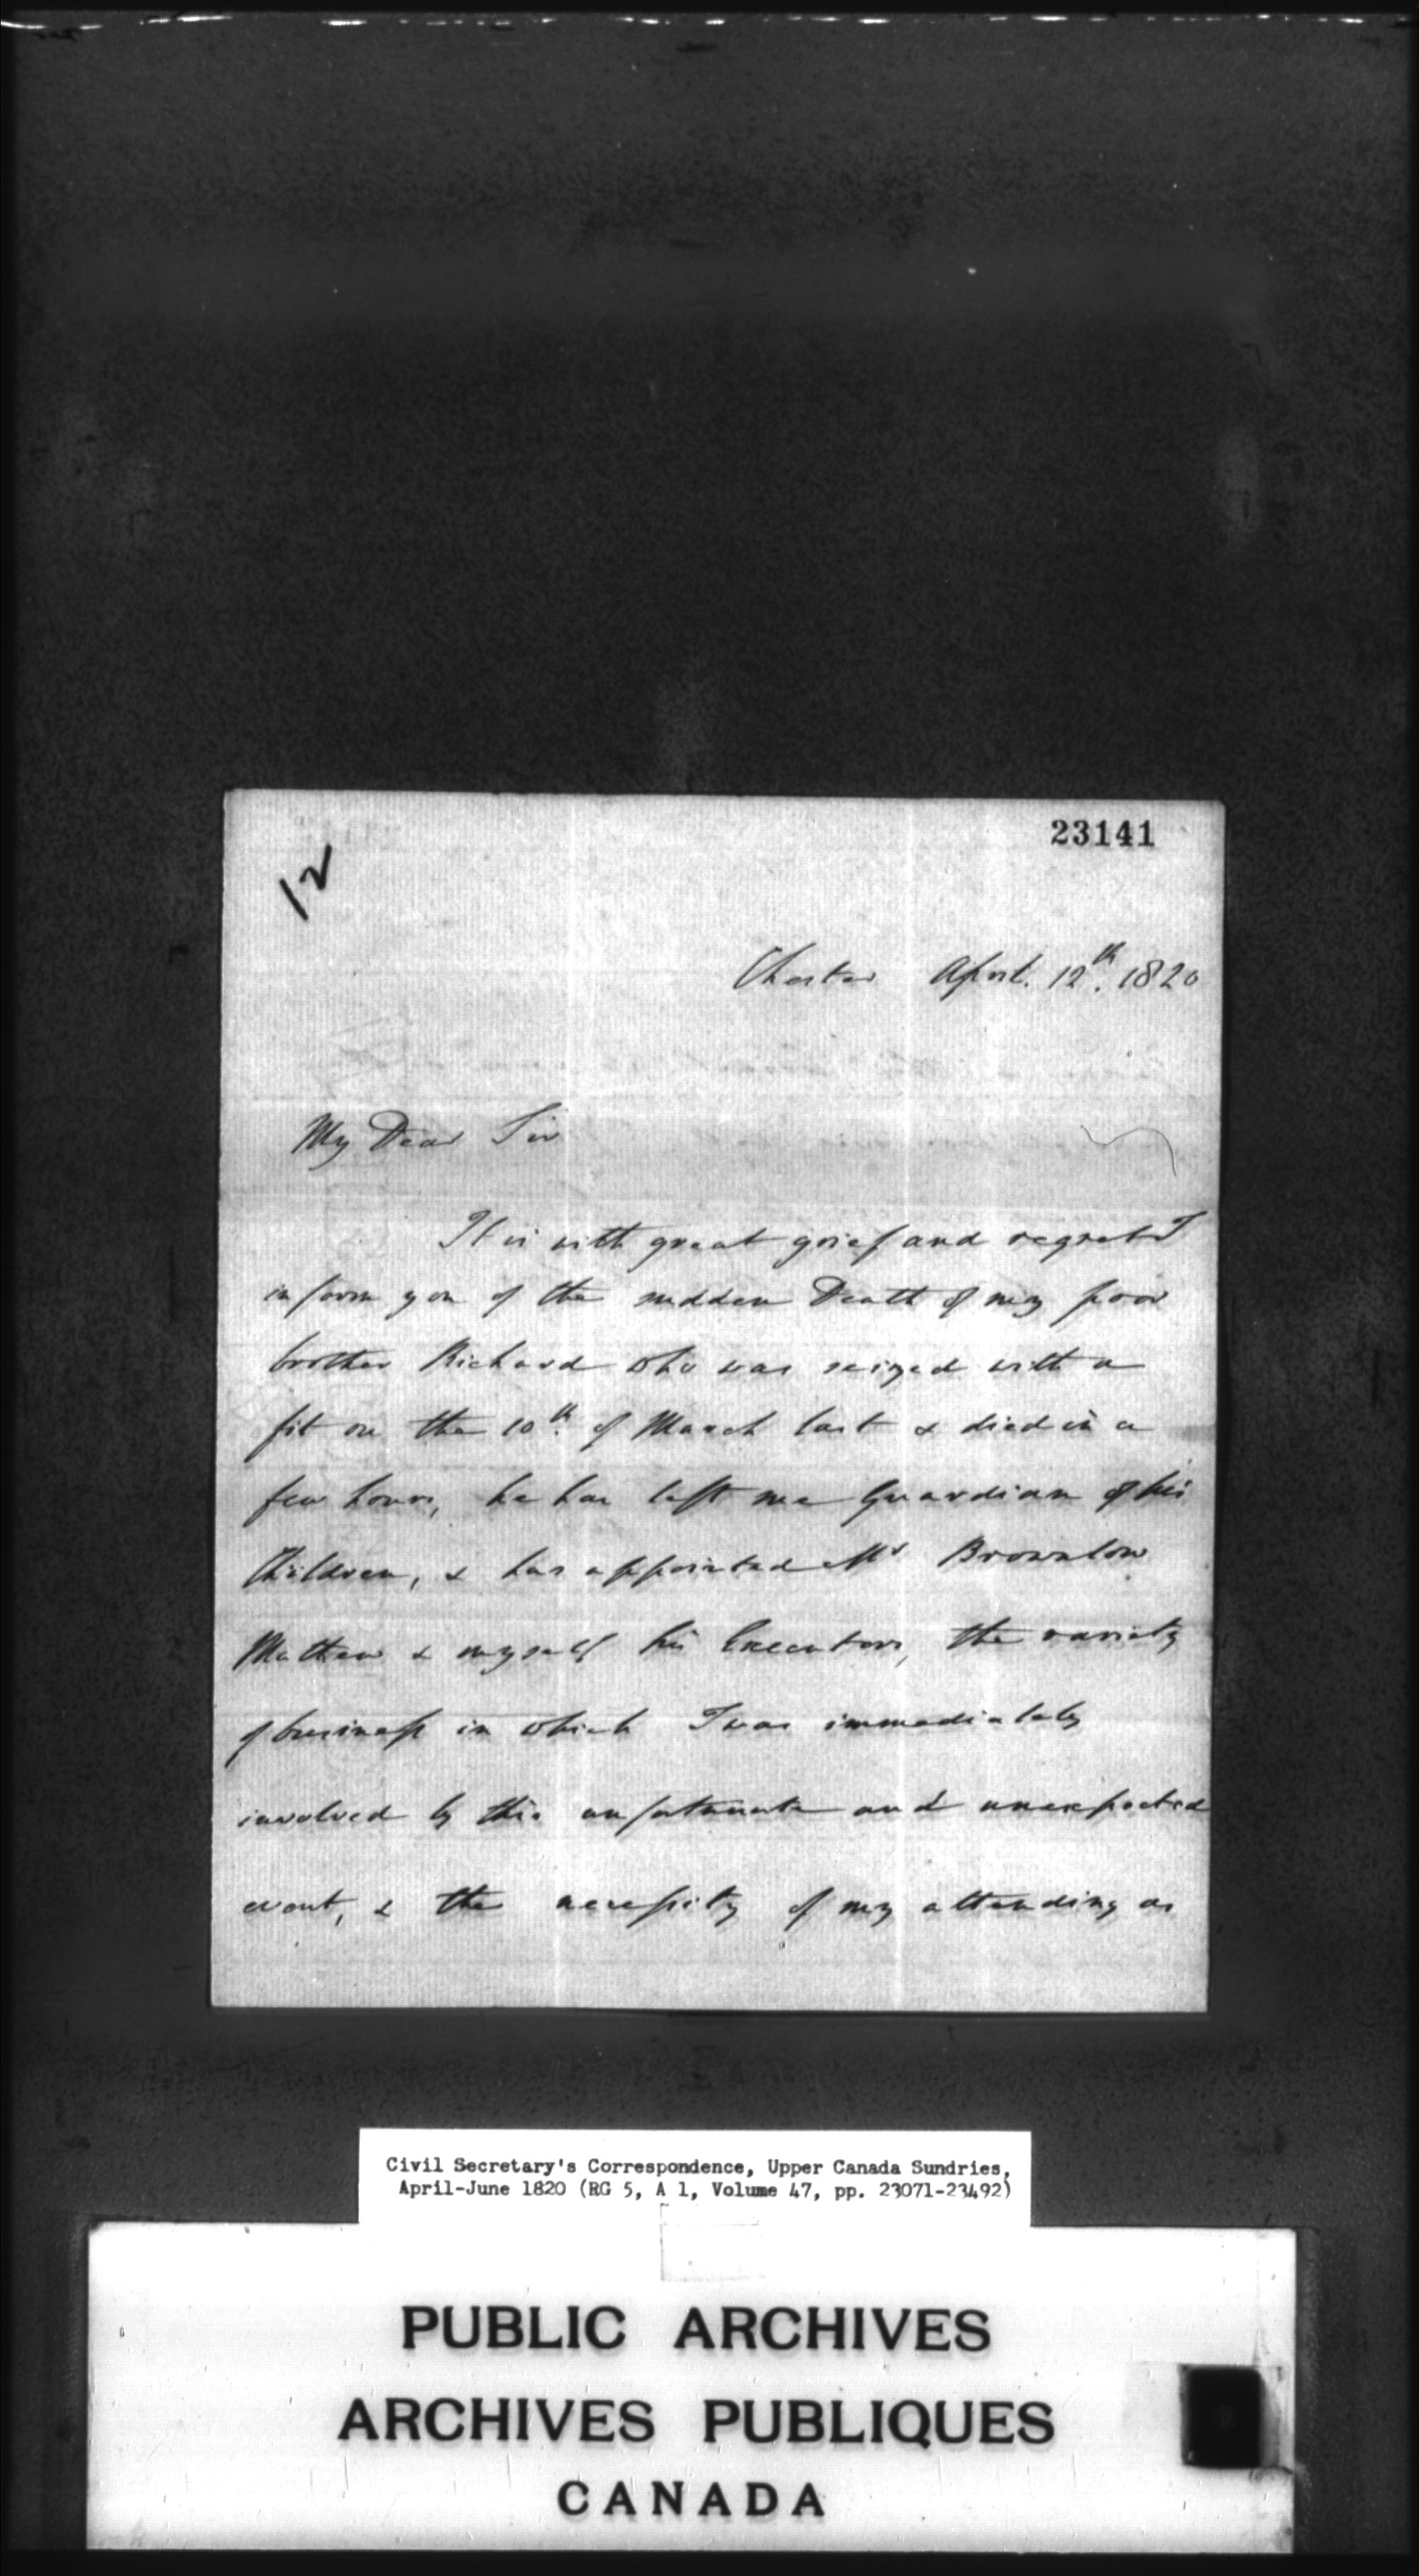 23141
12
Chester April. 12th. 1820
My Dear Sir
It is with great grief and regret I
inform you of the sudden Death of my poor
brother Richard who was seized with a
fit on the 10th. of March last & died in a
few hours, he has left me Guardian of his
Children, & has appointed Mr Brownlow
Mathew & myself his Executors, the variety
of business in which I was immediately
involved by this unfortunate and unexpected
event, & the necessity of my attending as
Civil Secretary's Correspondence, Upper Canada Sundries,
April-June 1820 (RG 5, A 1, Volume 47, pp. 23071-23492)
PUBLIC ARCHIVES
ARCHIVES PUBLIQUES
CANADA